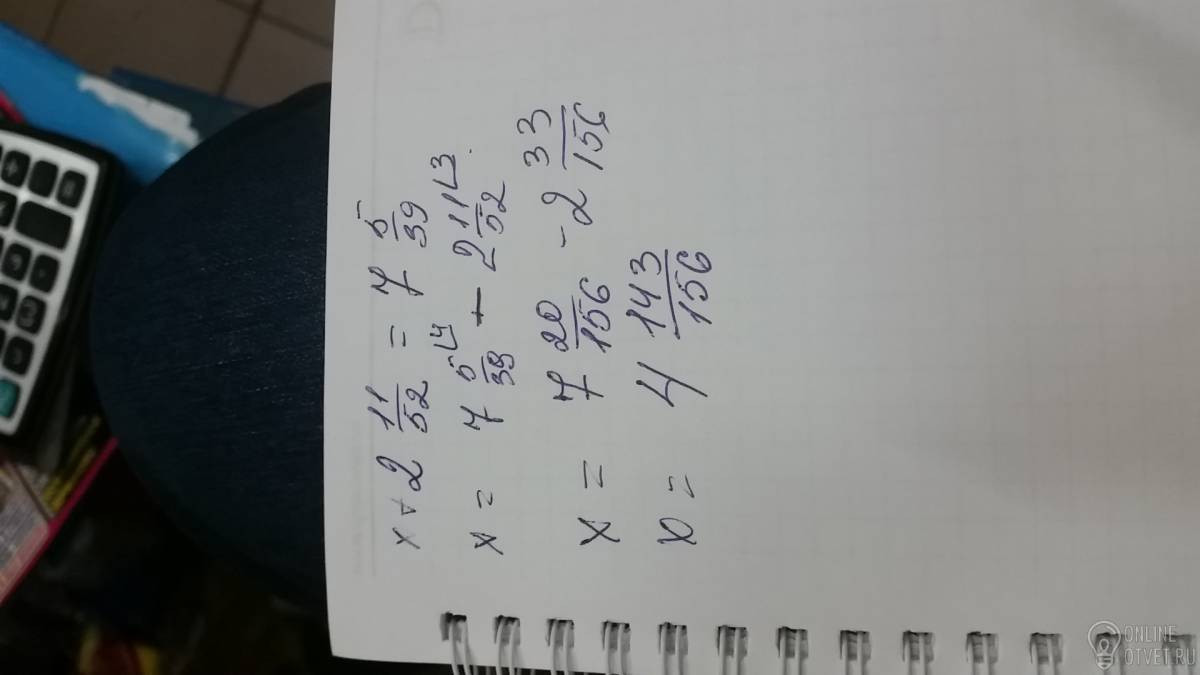 x + 2 11/52 = 7 5/39
x = 7 5/39 ⌊4 − 2 11/52 ⌊3.
x = 7 20/156 - 2 33/156
x = 4 143/156
ONLINE
OTVET.RU